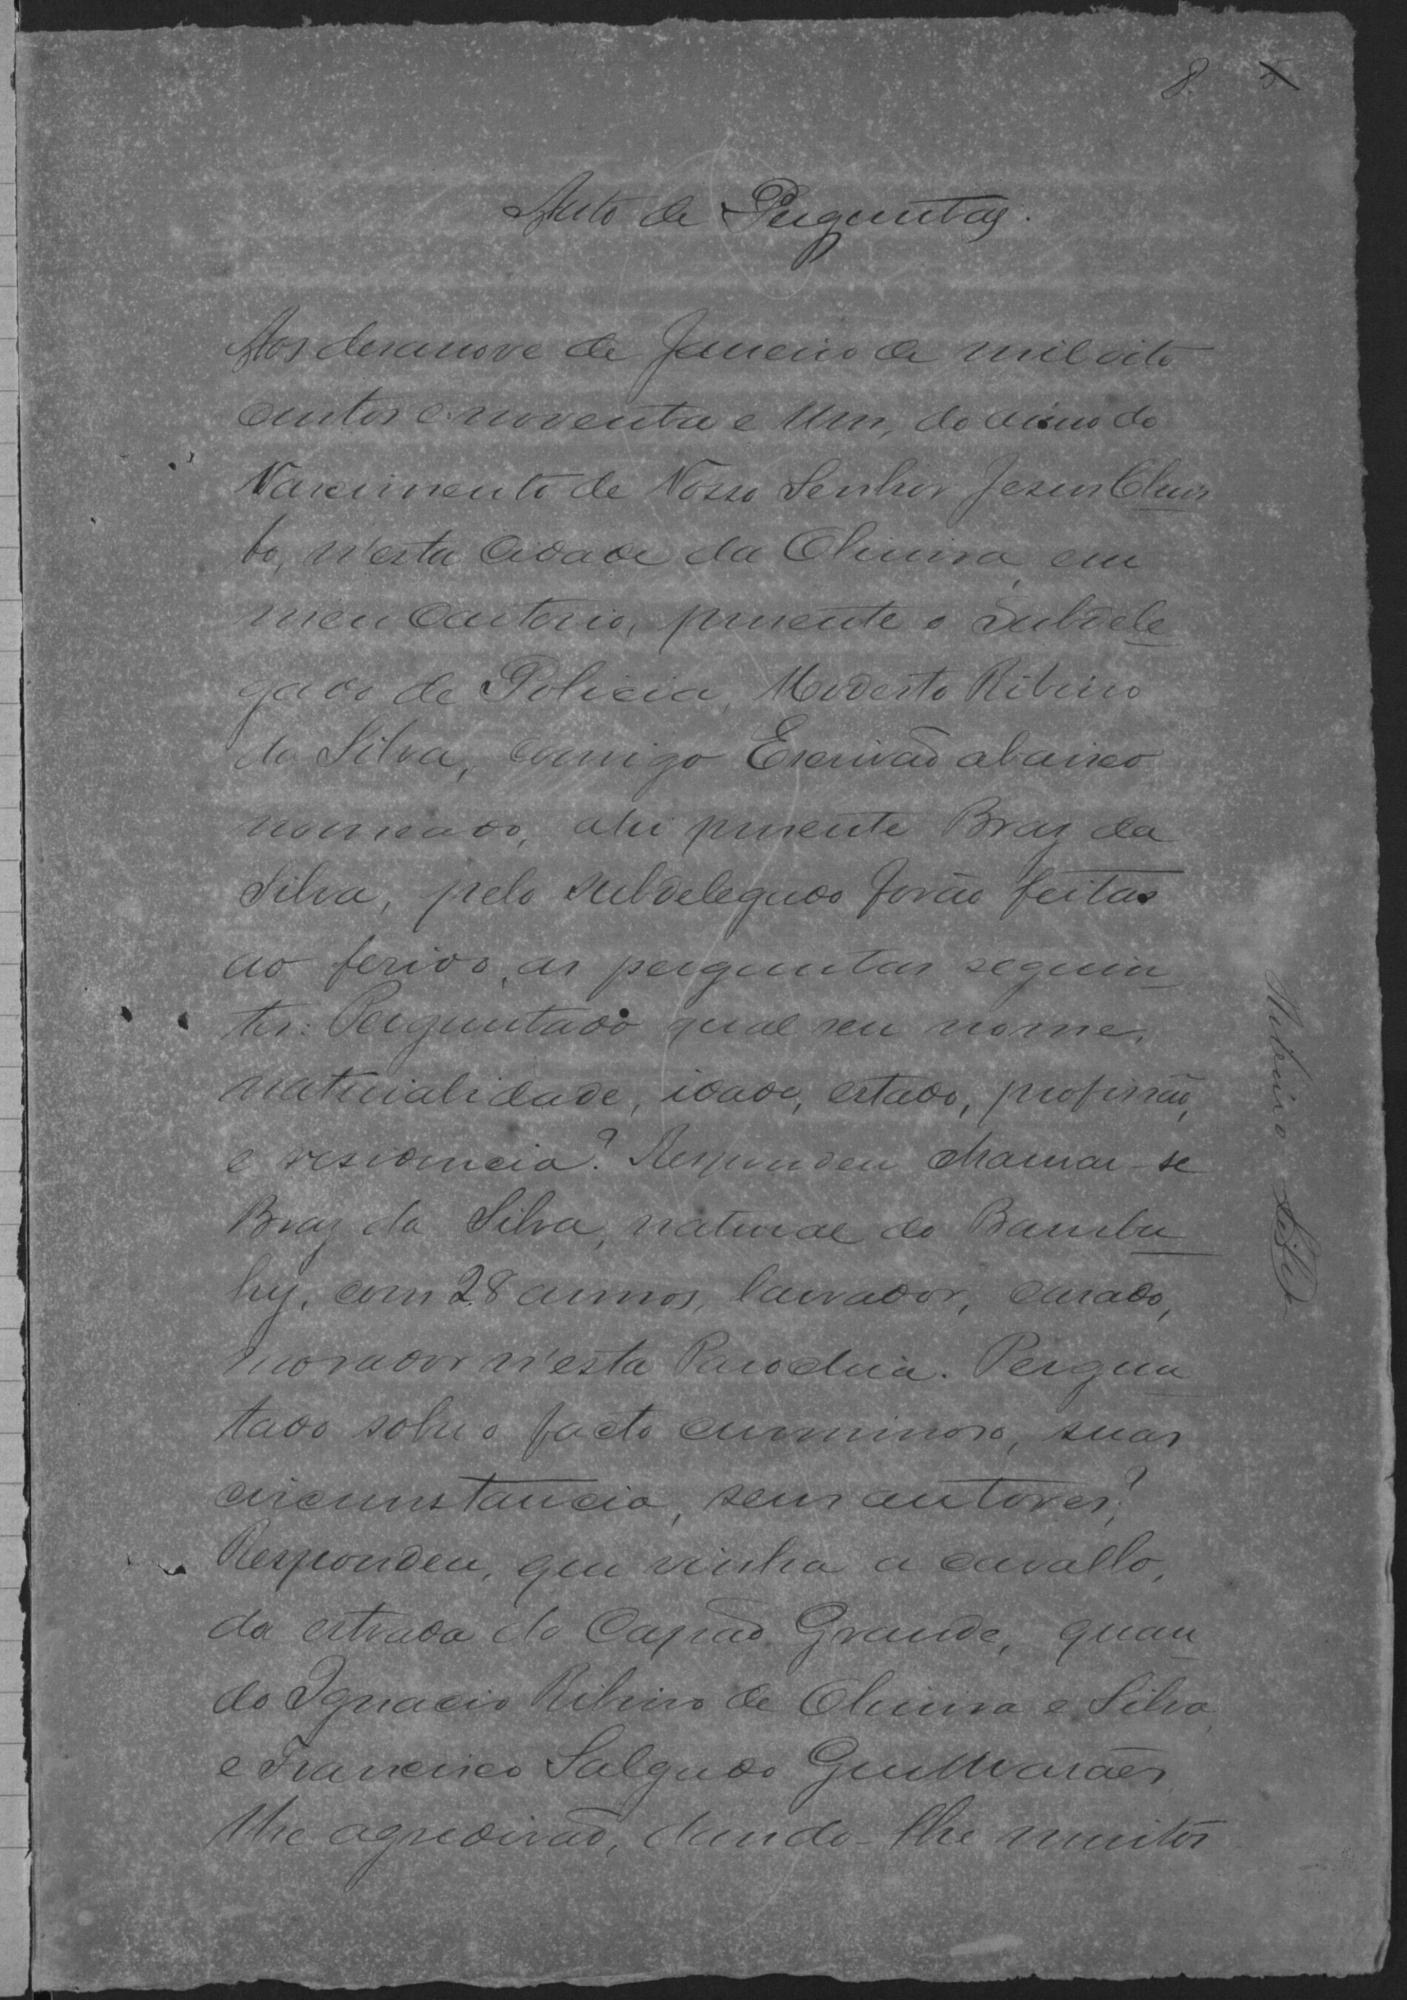 8.
Auto de Perguntas.
Aos desanove de Janeiro de mil oito
centos e noventa e um, do anno do
Nascimento de Nosso Senhor Jesus Chris
to, n'esta Cidade da Oliveira, em
meu Cartorio, presente o Subdele
gado de Policia, Modesto Ribeiro
da Silva, comigo Escrivão abaixo
nomeado, ahi presente Braz da
Silva, pelo subdelegado forão feitas
ao ferido as perguntas seguin
tes: Perguntado qual seu nome,
naturalidade, idade, estado, profissão,
e residencia? Respondeu chamar-se
Braz da Silva, natural do Bambu
hy, com 28 annos, lavrador, casado,
morador n'esta Parochia. Pergun
tado sobre o facto criminoso, suas
circunstancia, seus autores?
Respondeu, que vinha a cavallo,
da estrada do Capão Grande, quan
do Ignacio Ribeiro de Oliveira e Silva
e Francisco Salgado Guimarães
lhe agredirão, dando-lhe muitos
Ribeiro Silva